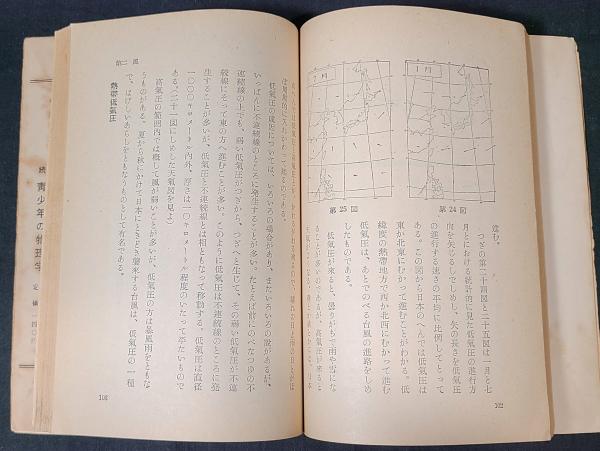 1月
7月
第24図
第25図
進む。
つぎの第二十四図と二十五図は一月と七
月とにおける統計的に見た低氣圧の進行方
向を矢じるしでしめし、矢の長さを低氣圧
の進行する速さの平均に比例してとって
ある。この図から日本のへんでは低氣圧は
東か北東にむかって進むことがわかる。低
緯度の熱帯地方で西か北西にむかって進む
低氣圧は、あとでのべる台風の進路をしめ
したものである。
低氣圧が來ると、曇りがちで雨や雪にな
ることが多いのであるが、高氣圧が來ると
102
は周期的に入れかわって起るのである。
低氣圧の成因については、いろいろの場合があり、まだいろいろの説があるが、
いっぱんに不連続線のところに発生することが多い。たとえば前にのべたつゆの不
連続線の上でも、弱い低氣圧がつぎから、つぎへと生じて、その弱い低氣圧が不連
続線にそって東の方へ進むことが多い。このように低氣圧は不連続線のところに発
生することが多いが、低氣圧と不連続線とは相ともなって移動する。低氣圧は直径
一〇〇〇キロメートル内外、厚さは一〇キロメートル程度のいたって平たいもので
ある。(二十一図にしめした天氣図を見よ)
高氣圧の範囲内では概して風が弱いことが多いが、低氣圧の方は暴風雨をともな
うものがある。夏から秋にかけて日本にときどき襲來する台風は、低氣圧の一種
で、はげしいあらしをともなうものとして有名である。
熱帯低氣圧
第二 風
103
続 青少年の物理学
定價